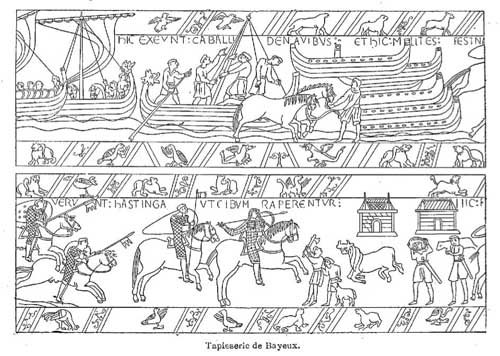 HIC EXEVNT: CABALLI DENAVIBVS: ET HIC: MILITES: FESTIN
VERVNT: hASTINGA VT CIBVM RAPERENTVR: HIC: E
Tapisserie de Bayeux.